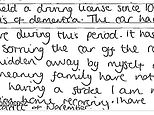 held a driving license since 10
is of dementia. The car ha
ve during this period. It has
sorning the car off the ro
hidden away by myself a
meaning family have not
having a stroke. I am n
home recovering. I have
of November